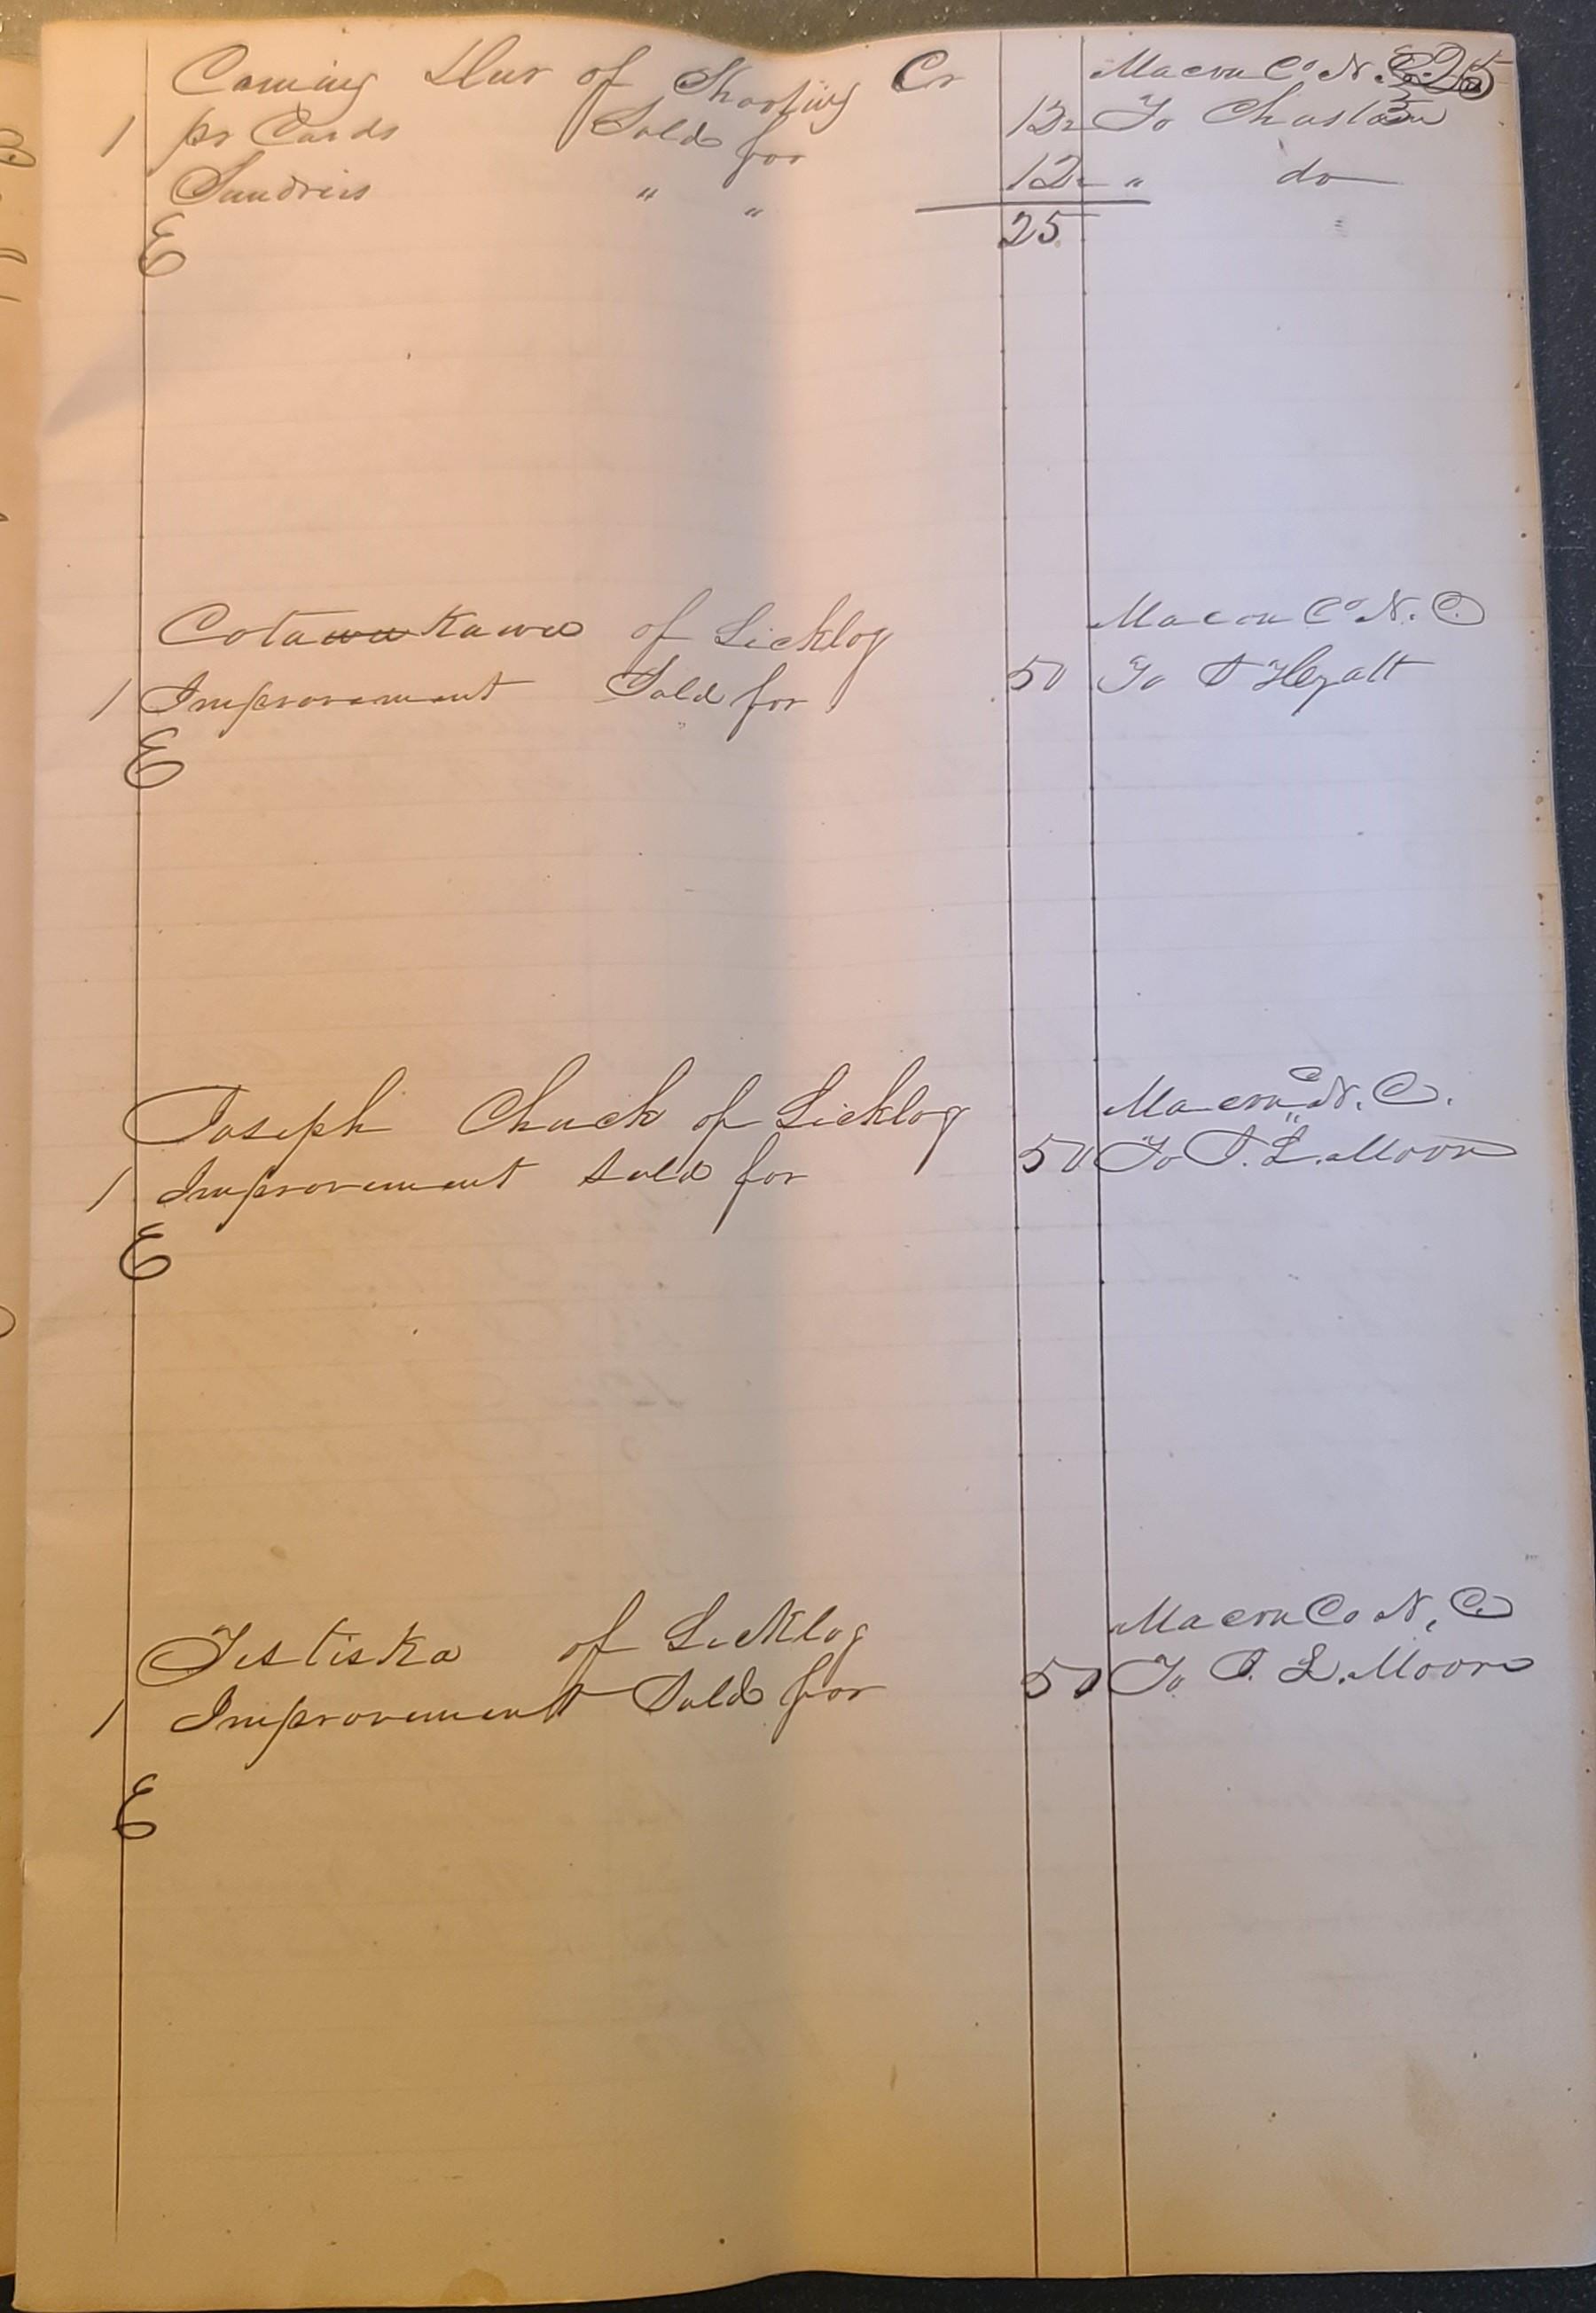 Coming Deer of Shooting Cr Macon Co N. C. 25
1 pr Cards Sold for 12½ To Chastain
Sundries " " 12½ " do
25
E
Cota Kawee of Licklog Macon Co N. C.
1 Improvement Sold for 50 To Hyatt
E
Joseph Chuck of Licklog Macon Co N. C.
1 Improvement Sold for 50 To L. Moore
E
Testiska of Licklog Macon Co N. C.
1 Improvement Sold for 50 To L. Moore
E